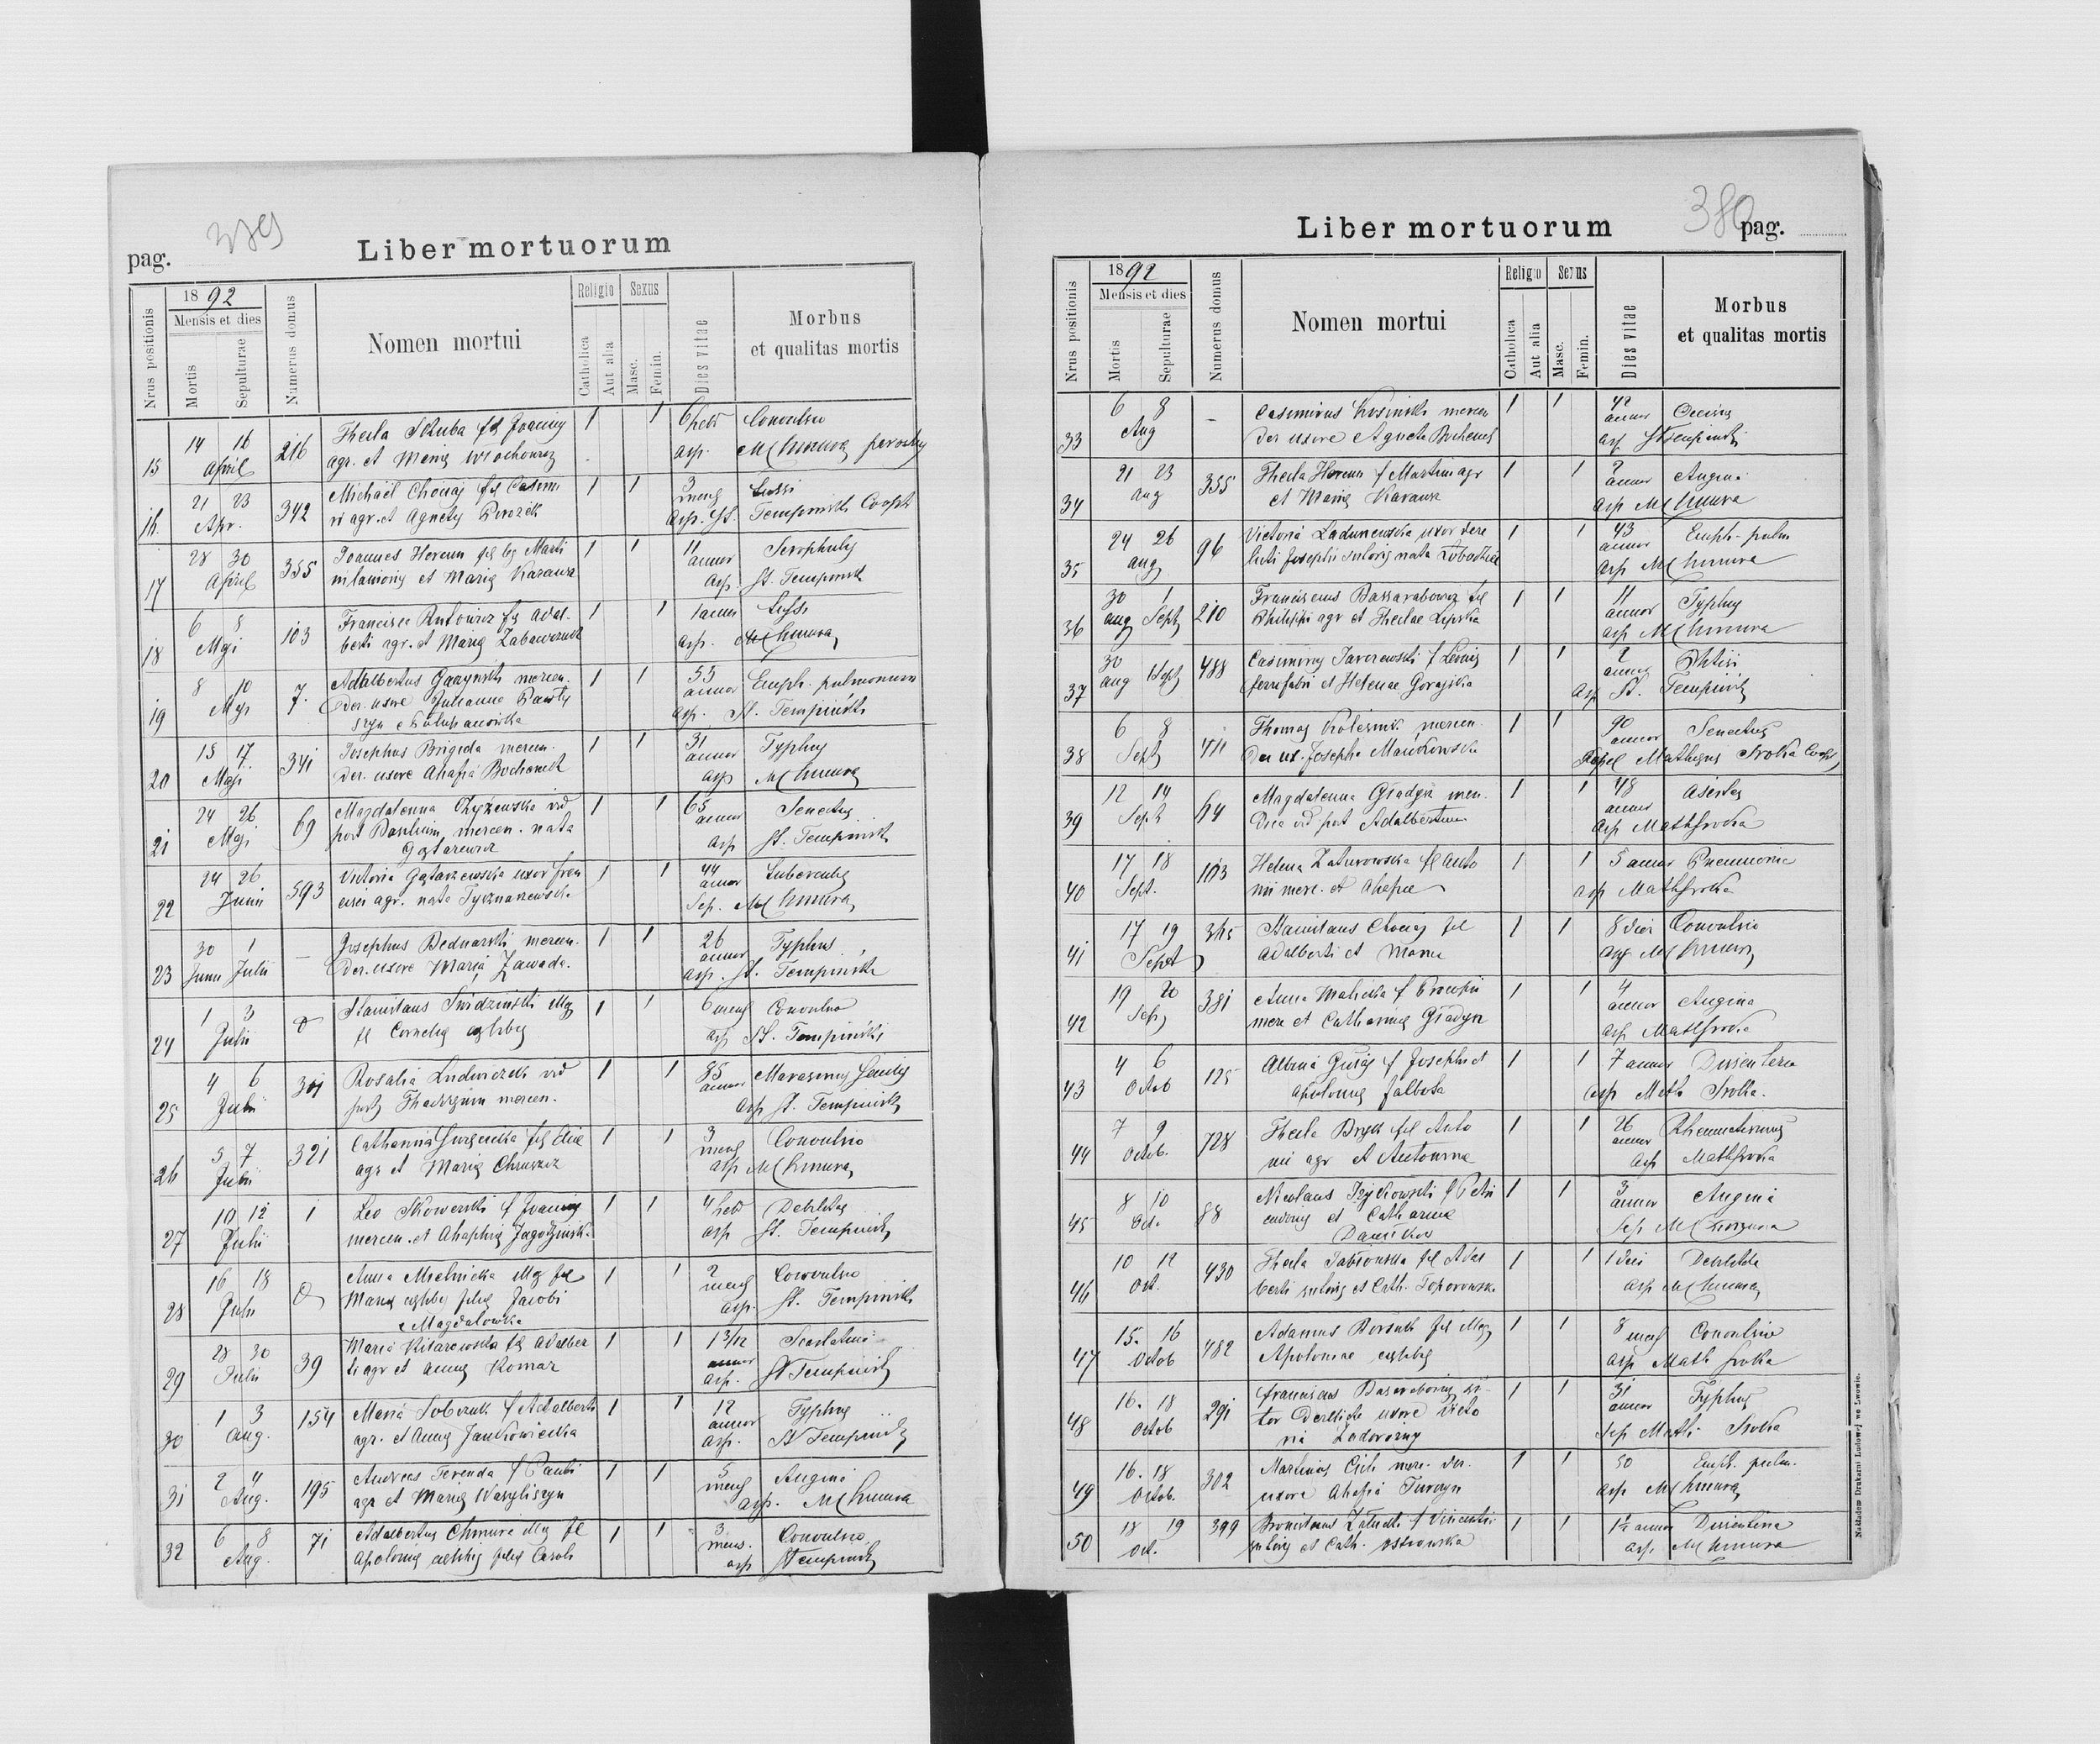 379
pag.
Liber mortuorum
Nrus positionis
1892
Mensis et dies
Mortis
Sepulturae
Numerus domus
Nomen mortui
Religio
Catholica
Aut alia
Sexus
Masc.
Femin.
Dies vitae
Morbus
et qualitas mortis
15 14 16 April 216
Thecla Skuba fil Joannis
agr. et Mariae Wlochowicz
1 1 6 hebd Convulsio
asp. M Chmura parochus
16. 21 23 Apr. 342
Michaël Chonaj fil Casimi
ri agr. et Agnetis Pirożek
1 1 3 mens Tussi
Asp. St. Tempinski Coop
17 28 30 April 355
Joannes Horeun fil leg Marti
ni lanionis et Mariae Karawa
1 1 11 annor Scrophulis
asp. St. Tempinsk
18 6 8 Maji 103
Francisca Rutowicz fil Adal-
berti agr. et Maria
1 1 1 ann Tussi
asp. M Chmura
19 8 10 Maji 7.
Adalbertus Garynski mercen.
der. uxore Julianna
1 1 55 annor Emph. pulmonum
asp. St. Tempiński
20 15 17 Maji 341
Josephus Brigida mercen.
der. uxore Ahafia Bochenek
1 1 31 annor Typhus
asp M Chmura
21 24 26 Maji 69
Magdalenna Czyżewska vid
post Basilium mercen. nata
1 1 65 annor Senectus
asp St. Tempinsk
22 24 26 Junii 593
Victoria uxor Fran
cisci agr. nata
1 1 44 annor Tuberculis
Sep. M Chmura
23 30 1 Junii Julii —
Josephus Bednarski mercen.
der. uxore Maria Zawada.
1 1 26 annor Typhus
asp. St. Tempińsk
24 1 3 Julii
Stanislaus Swidziński illeg
fil Corneliae
1 1 6 mens Convulsio
asp St. Tempiński
25 4 6 Julii 301
Rosalia Ludwiczek vid
post mercen.
1 1 85 annor Marasmus Senilis
asp St. Tempinsk
26 5 7 Julii 321
Catharina fil Eliae
agr et Mariae Chruszcz
1 1 3 mens Convulsio
asp M Chmura
27 10 12 Julii 1
Leo Skowerski f Joannis
mercen. et Ahaphia Jagodzinsk.
1 1 4 hebd Debilitas
asp St. Tempinsk
28 16 18 Julii
Anna Mielnicka illeg fil
Maria filia Jacobi
Magdalowska
1 1 2 mens Convulsio
asp. St. Tempinsk
29 28 30 Julii 39
Maria Kitarowska fil Adalber
ti agr et Anna Komar
1 1 1 3/12 annor Scarlatina
asp. St Tempinsk
30 1 3 Aug. 154
Maria Sobczuk f Adalberti
agr. et Anna Jankowiecka
1 1 12 annor Typhus
asp. St Tempinsk
31 2 4 Aug. 195
Andreas Terenda f Pauli
agr et Maria Wasyliszyn
1 1 5 mens Angina
asp. M Chmura
32 6 8 Aug. 71
Adalbertus Chmura illeg fil
Apolonia filia Caroli
1 1 3 mens. Convulsio
asp St Tempinsk
380
pag.
Liber mortuorum
Nrus positionis
1892
Mensis et dies
Mortis
Sepulturae
Numerus domus
Nomen mortui
Religio
Catholica
Aut alia
Sexus
Masc.
Femin.
Dies vitae
Morbus
et qualitas mortis
33 6 8 Aug —
Casimirus Kosinski mercen
der uxore Agneta Bochenek
1 1 42 annor
asp St Tempinski
34 21 23 Aug 355
Thecla Horeun f Martini agr
et Maria Karawa
1 1 2 annor Angina
asp M Chmura
35 24 26 aug 96
Victoria Ladunewska uxor dere
licti Josephi sutoris nata
1 1 43 annor Emph. pulm
asp M Chmura
36 30 aug 1 Sept 210
Franciscus Bassarabowicz fil
Philippi agr et Theclae Lipska
1 1 11 annor Typhus
asp M Chmura
37 30 aug 1 Sept 488
Casimirus Jaworewski f Leonis
ferrifabri et Helenae
1 1 2 annor Phtisi
asp St. Tempinsk
38 6 8 Sept 411
Thomas Kolesnik mercen.
der ux. Josepha Mańkowska
1 1 90 annor Senectus
Sepel Matheus Sroka Coop
39 12 14 Sept 64
Magdalenna Gładysz men.
dica vid post Adalbertum
1 1 48 annor Ascites
asp Math Sroka
40 17 18 Sept. 103
Helena Zaturowska fil Anto
nii merc. et Ahafia
1 1 5 annor Pneumonia
asp Math Sroka
41 17 19 Sept 365
Stanislaus Chonaj fil
Adalberti et Maria
1 1 8 dier Convulsio
asp M Chmura
42 19 20 Sept 381
Anna Malicka f Procopii
merc et Catharina Gładysz
1 1 4 annor Angina
asp Math Sroka
43 4 6 Octob 125
Albina f Josephi et
Apolonia Jalbota
1 1 7 annor Dissenteria
asp Math Sroka.
44 7 9 Octob. 728
Thecla Bryk fil Anto
nii agr et Antonina
1 1 26 annor Rheumatismus
asp Math Sroka
45 8 10 Oct. 88
Nicolaus f Petri
et Catharina
1 1 3 annor Angina
Sep M Chmura
46 10 12 Oct. 430
Thecla Jabłonska fil Adal
berti sutoris et Cath. Toporowsk.
1 1 1 diei Debilitas
asp M Chmura
47 15. 16 Octob 482
Adamus Borsuk fil illeg
Apoloniae
1 1 8 mens Convulsio
asp Math Sroka
48 16. 18 Octob 291
Franciscus su-
tor derelicta uxore Victo
ria
1 1 31 annor Typhus
Sep Math. Sroka
49 16. 18 Octob. 302
Martinus Cich merc. der.
uxore Ahafia
1 1 50 Emph. pulm.
asp M Chmura
50 18 19 Oct. 399
Bronislaus f Vincentii
sutoris et Cath. Ostrowska
1 1 1½ annor Dissenteria
asp. M Chmura
Nakładem Drukarni Ludowej we Lwowie.